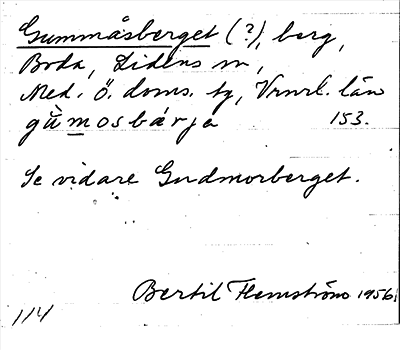 Gummåsberget (?), berg,
Boda, Lidens sn,
Med. ö. doms. tg, Vrnrl. län
gùmosbárja 153.
Se vidare Gudmorberget.
Bertil Flemström 1956
114